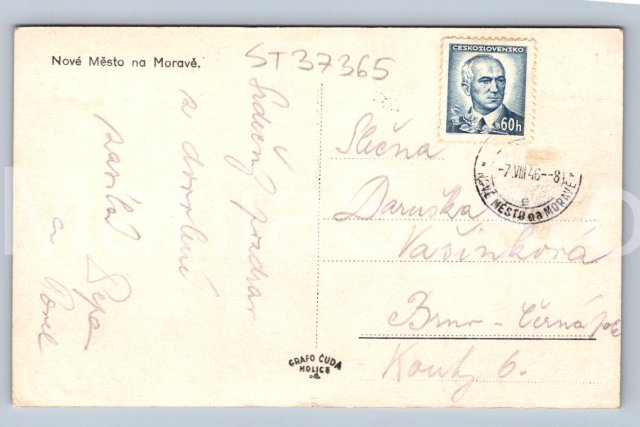 Nové Město na Moravě.
ST37365
Srdečný pozdrav
z dovolené
zasílá Pepa
a
ČESKOSLOVENSKO
60h
-7.VIII.46--8
NOVÉ MĚSTO na MORAVĚ
e
Slečna
Daruška
Vašinková
Brno - Černá pole
6.
GRAFO ČUDA
HOLICE